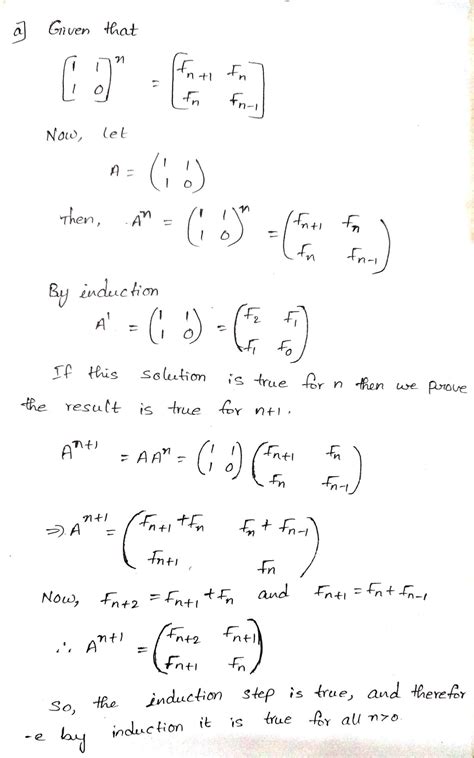 a] Given that
[1 1
1 0]^n = [f_{n+1} f_n
f_n f_{n-1}]
Now, let
A = (1 1
1 0)
Then, A^n = (1 1
1 0)^n = (f_{n+1} f_n
f_n f_{n-1})
By induction
A^1 = (1 1
1 0) = (f_2 f_1
f_1 f_0)
If this solution is true for n then we prove
the result is true for n+1.
A^{n+1} = AA^n = (1 1
1 0) (f_{n+1} f_n
f_n f_{n-1})
⇒ A^{n+1} = (f_{n+1} + f_n f_n + f_{n-1}
f_{n+1} , f_n)
Now, f_{n+2} = f_{n+1} + f_n and f_{n+1} = f_n + f_{n-1}
∴ A^{n+1} = (f_{n+2} f_{n+1}
f_{n+1} f_n)
So, the induction step is true, and therefor
-e by induction it is true for all n>0.